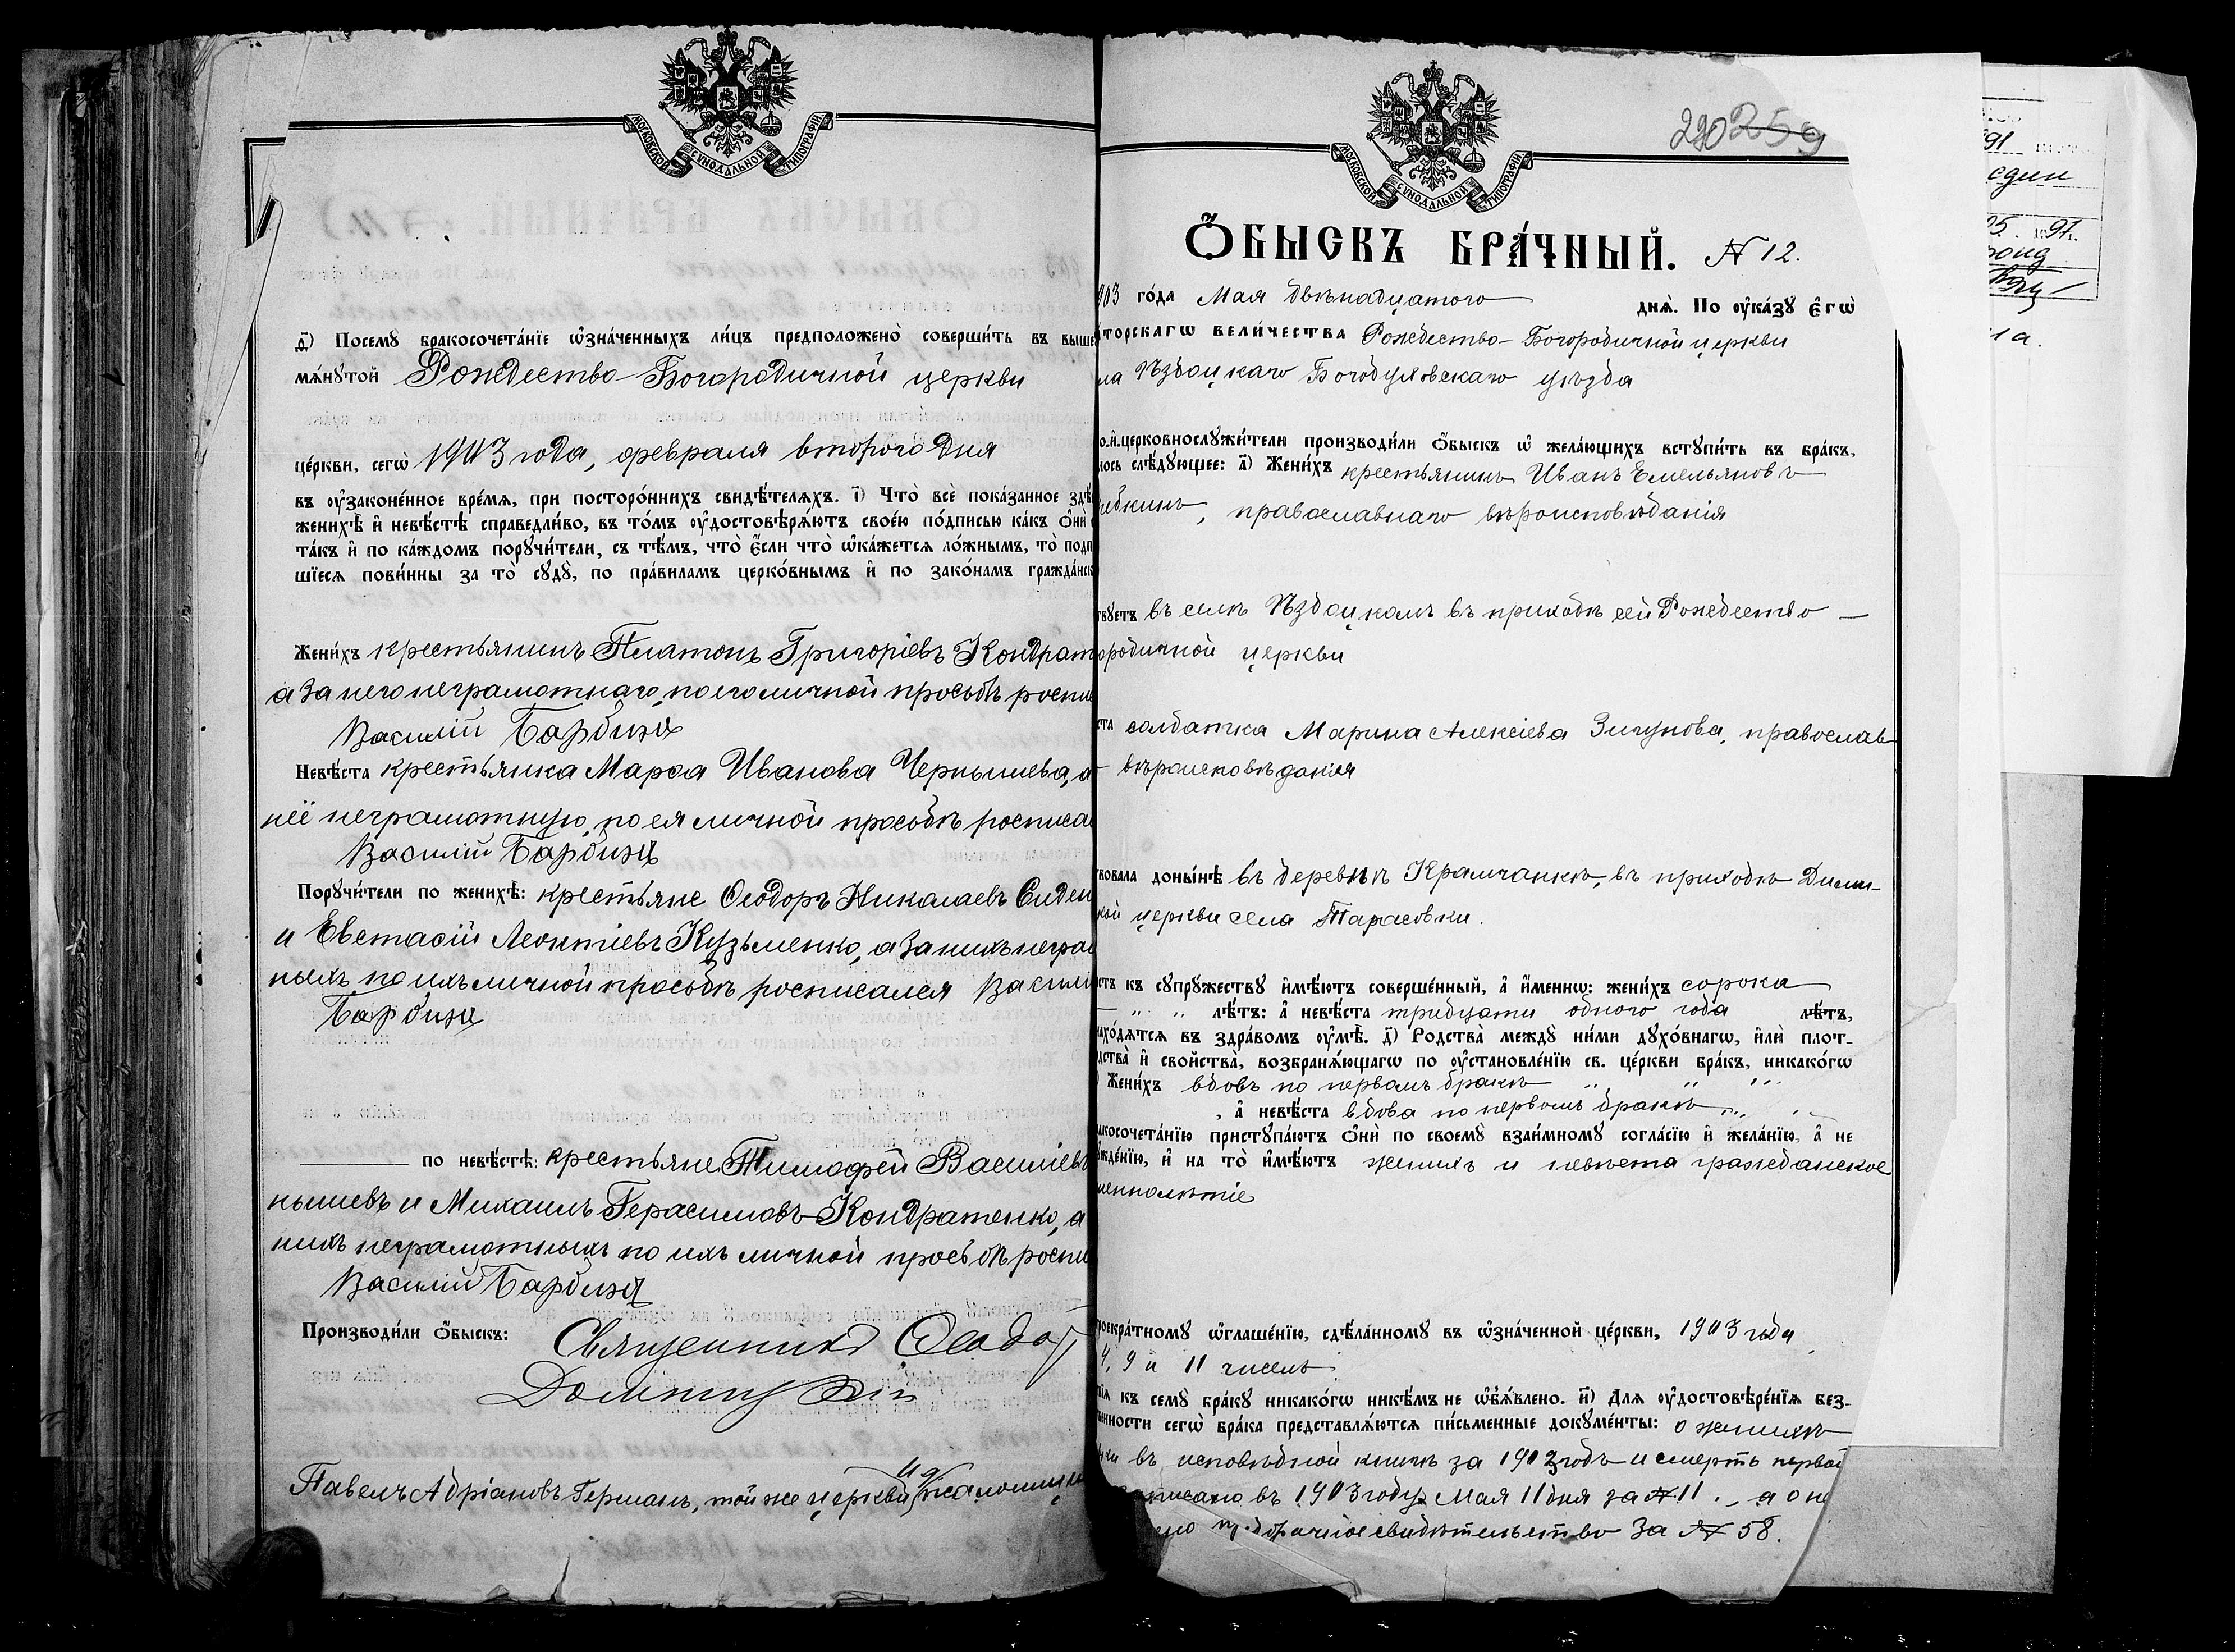 МОСКОВСКОЙ СУНОДАЛЬНОЙ ТИПОГРАФІИ
ѳ҃) Посемꙋ бракосочета́нїе ѡ҆зна́ченныхъ ли́цъ предположено̀ соверши́ть въ выше
мѧ́нꙋтой Рождество-Богородичной церкви
це́ркви, сегѡ̀ 1903 года, февраля второго дня
въ ᲂу҆законе́нное вре́мѧ, при посторо́ннихъ свидѣ́телѧхъ. і҃) Что̀ всѐ пока́занное здѣ
женихѣ̀ и҆ невѣ́стѣ справедли́во, въ то́мъ ᲂу҆достовѣрѧ́ютъ свое́ю по́дписью ка́къ ѻ҆нѝ
та́къ и҆ по ка́ждомъ порꙋчи́тели, съ тѣ́мъ, что̀ є҆́сли что̀ ѡ҆ка́жетсѧ ло́жнымъ, то̀ подп
шїесѧ пови́нны за то̀ сꙋдꙋ̀, по пра́виламъ церко́внымъ и҆ по зако́намъ гражда́нск
Жени́хъ крестьянинъ Платонъ Григоріевъ Кондрат
а за него неграмотнаго, по его личной просьбѣ роспи
Василій
Невѣ́ста крестьянка Марѳа Иванова Чернышева, а
неё неграмотную, по ея личной просьбѣ росписа
Василій
Порꙋчи́тели по женихѣ̀: крестьяне Ѳеодоръ Николаевъ
и Евстаѳій Леонтіевъ Кузьменко, а за нихъ неграм
ныхъ по ихъ личной просьбѣ росписался Васили
по невѣ́стѣ: крестьяне Тимофей Василіев
нышевъ и Михаилъ Герасимовъ Кондратенко, а
нихъ неграмотныхъ по ихъ личной просьбѣ роспи
Василій
Производи́ли ѻ҆́быскъ: Священникъ Ѳеодор
Павелъ Адріановъ Герман, той же церкви псаломщик
МОСКОВСКОЙ СУНОДАЛЬНОЙ ТИПОГРАФІИ
290 259
Ѻ҆́БЫСКЪ БРА́ЧНЫЙ. № 12.
903 го́да Мая двѣнадцатого днѧ̀. По ᲂу҆ка́зꙋ є҆гѡ̀
торскагѡ вели́чества Рождество-Богородичной церкви
ла Богодуховскаго уѣзда
о.и҆.церковнослꙋжи́тели производи́ли ѻ҆́быскъ ѡ҆ жела́ющихъ встꙋпи́ть въ бра́къ,
лось слѣ́дꙋющее: а҃) Жени́хъ крестьянинъ Иванъ Емельяновъ
ибкинъ, православнаго вѣроисповѣданія
твꙋетъ въ селѣ въ приходѣ сей Рождество —
ородичной церкви
ста солдатка Марина Алексіева Зигунова, православ
вѣроисповѣданія
твовала доны́нѣ въ деревнѣ Крамчанкѣ, въ приходѣ Дими-
кой церкви села Тарасовки.
стъ къ сꙋпрꙋ́жествꙋ и҆мѣ́ютъ соверше́нный, а҆ и҆́меннѡ: жени́хъ сорока
лѣ́тъ: а҆ невѣ́ста тридцати одного года лѣ́тъ,
нахо́дѧтсѧ въ здра́вомъ ᲂу҆мѣ̀. д҃) Родства̀ междꙋ̀ ни́ми дꙋхо́внагѡ, и҆лѝ плот-
дства̀ и҆ свойства̀, возбранѧ́ющагѡ по ᲂу҆становле́нїю св. це́ркви бра́къ, никако́гѡ
Жени́хъ вдовъ по первомъ бракѣ
, а҆ невѣ́ста вдова по первомъ бракѣ
акосочета́нїю пристꙋпа́ютъ ѻ҆нѝ по своемꙋ̀ взаи́мномꙋ согла́сїю и҆ жела́нїю, а҆ не
ꙋжде́нїю, и҆ на то̀ и҆мѣ́ютъ женихъ и невѣста гражданское
шеннолѣтіе
роекра́тномꙋ ѡ҆глаше́нїю, сдѣ́ланномꙋ въ ѡ҆зна́ченной це́ркви, 1903 года
4, 9 и 11 числъ
твїѧ къ семꙋ̀ бра́кꙋ никако́гѡ никѣ́мъ не ѡ҆б̾ѧ́влено. и҃) Длѧ ᲂу҆достовѣре́нїѧ без-
пенности сегѡ̀ бра́ка представлѧ́ютсѧ пи́сьменные докꙋме́нты: о женихѣ
въ исповѣдной книгѣ за 1903 годъ и смерть первой
записано въ 1903 году Мая 11 дня за № 11., а о не
ено предбрачное свидѣтельство за № 58.
91
един
05. 91.
фонд
1 а.